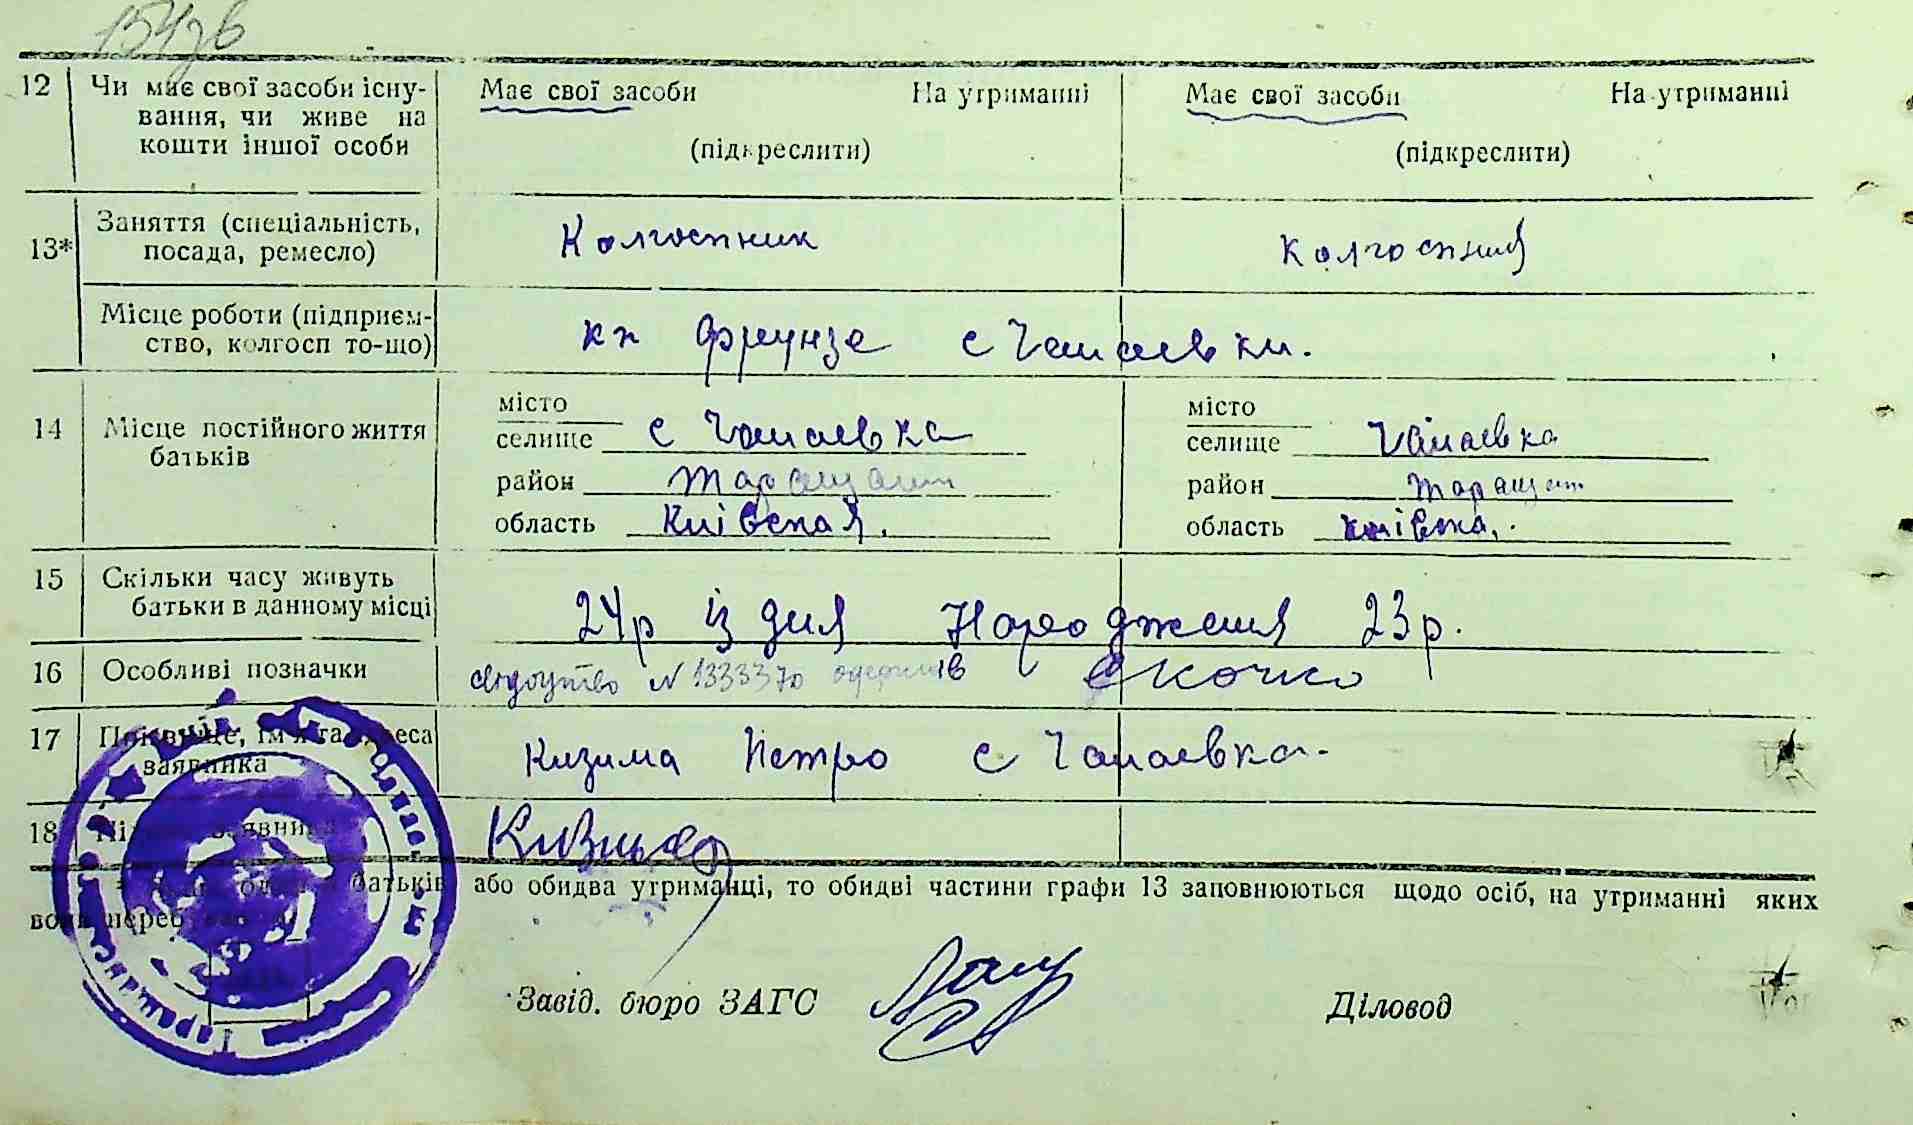 12 Чи має свої засоби існу- Має свої засоби На утриманні Має свої засоби На утриманні
вання, чи живе на
кошти іншої особи (підкреслити) (підкреслити)
13* Заняття (спеціальність, Колгоспник Колгоспниця
посада, ремесло)
Місце роботи (підприєм- кп Фрунзе с Чапаевки.
ство, колгосп то-що)
14 Місце постійного життя батьків
місто місто
селище с Чапаевка селище Чапаевка
район Таращан район Таращан
область Київская. область Київска.
15 Скільки часу живуть
батьки в данному місці 24р із дня Народження 23р.
16 Особливі позначки свідоцтво N 1333370 одержав
17 Прізвище, ім'я та адреса Кизима Петро с Чапаевка.
заявника
18 Підпис заявника Кизима
* Якщо один з батьків або обидва утриманці, то обидві частини графи 13 заповнюються щодо осіб, на утриманні яких
вони перебувають.
Завід. бюро ЗАГС Діловод